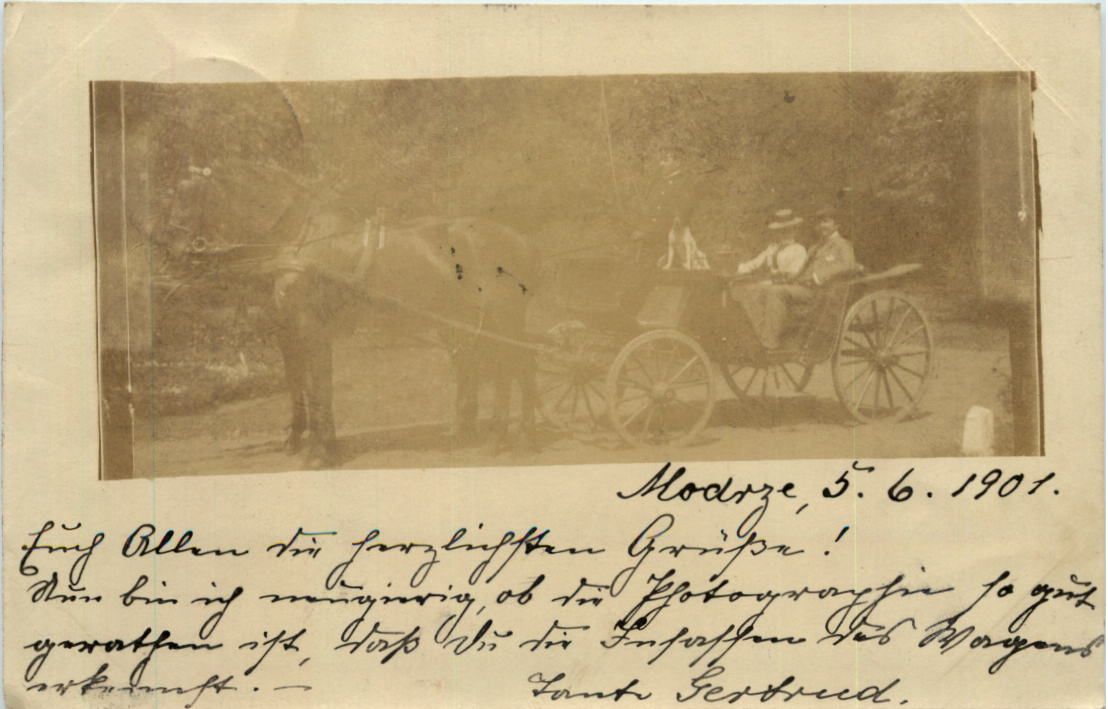 Modrze, 5. 6. 1901.
Euch Allen die herzlichsten Grüße!
Nun bin ich neugierig, ob die Photographie so gut
gerathen ist, daß Du die Insassen des Wagens
erkennst. —
Tante Gertrud.